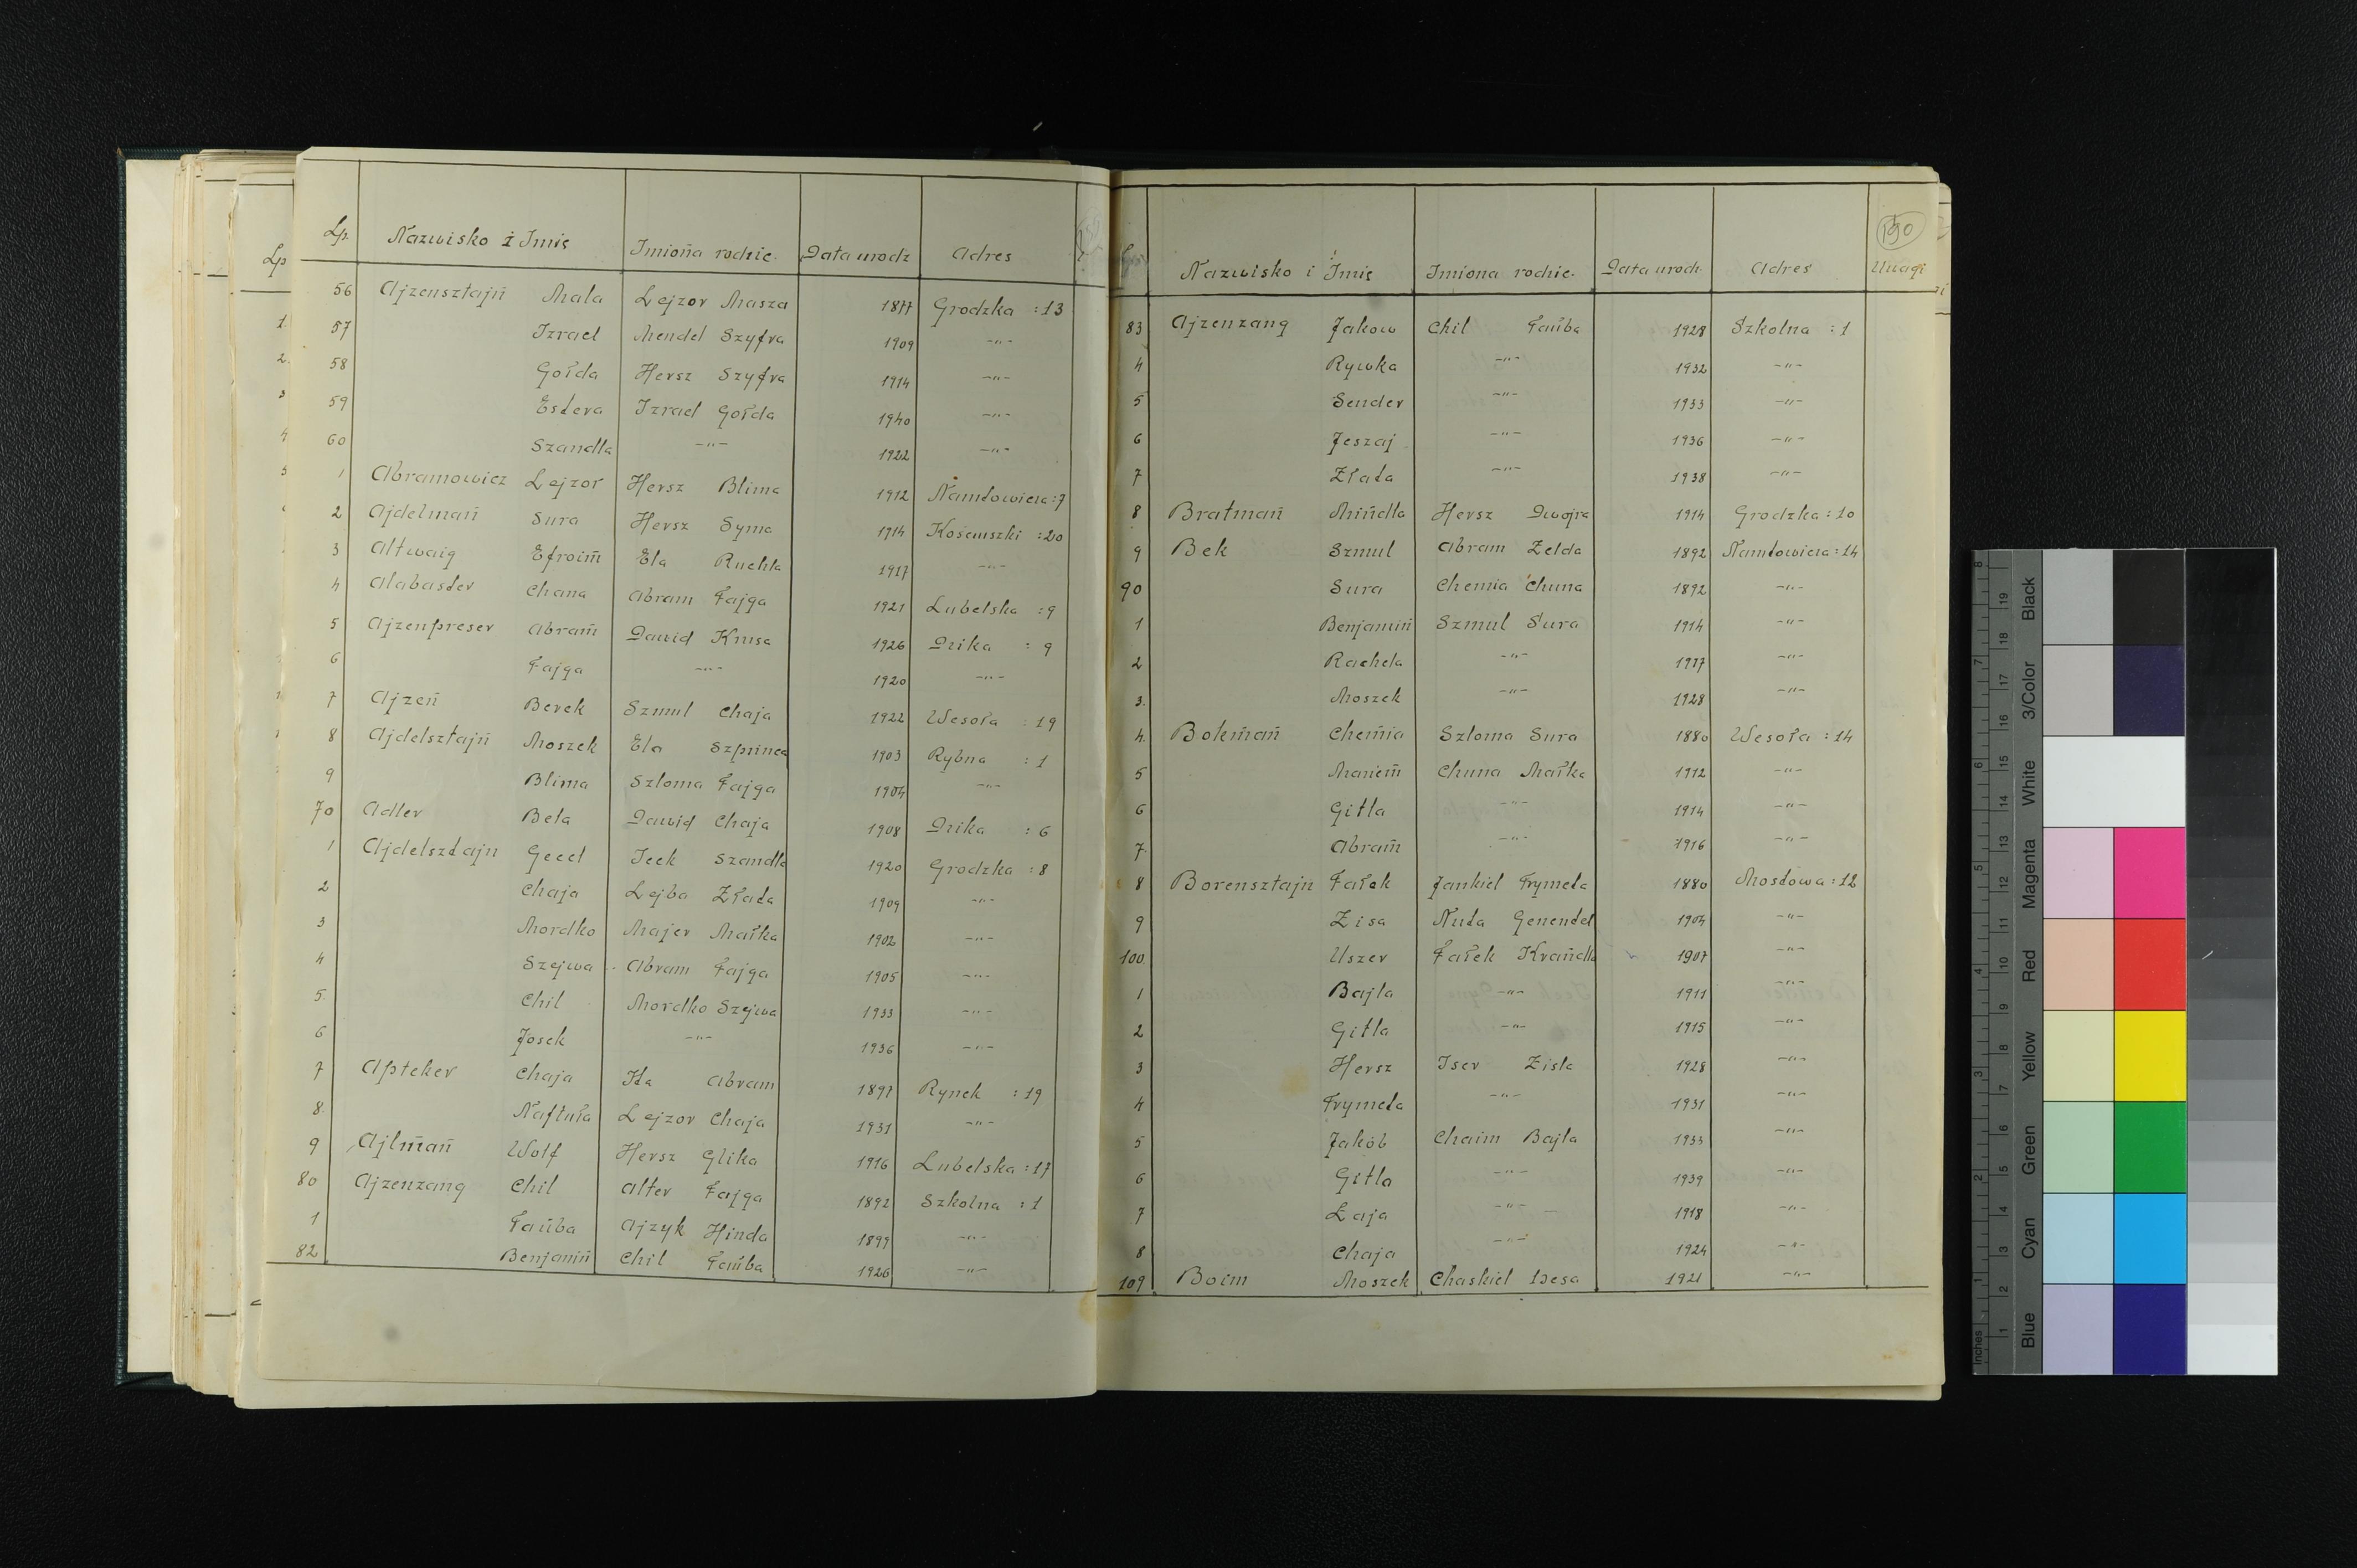 Lp. Nazwisko i Imię Imiona rodzic. Data urodz Adres
56 Ajzensztajn Mala Lejzor Masza 1877 Grodzka :13
57 Izrael Mendel Szyfra 1909 -"-
58 Gołda Hersz Szyfra 1914 -"-
59 Estera Izrael Gołda 1940 -"-
60 Szandla -"- 1922 -"-
1 Abramowicz Lejzor Hersz Blima 1912 :7
2 Ajdelman Sura Hersz Syma 1914 :20
3 Altwaig Efroim Ela Ruchla 1917 -"-
4 Alabaster Chana Abram Fajga 1921 Lubelska :9
5 Ajzenpreser Abram Dawid Krusa 1926 Dzika : 9
6 Fajga -"- 1920 -"-
7 Ajzen Berek Szmul Chaja 1922 Wesoła :19
8 Ajdelsztajn Moszek Ela Szprinca 1903 Rybna :1
9 Blima Szloma Fajga 1904 -"-
70 Adler Bela Dawid Chaja 1908 Dzika : 6
1 Ajdelsztajn Gecel Icek Szandla 1920 Grodzka :8
2 Chaja Lejba Złata 1909 -"-
3 Mordko Majer Małka 1902 -"-
4 Szejwa Abram Fajga 1905 -"-
5. Chil Mordko Szejwa 1933 -"-
6 Josek -"- 1936 -"-
7 Apteker Chaja Ita Abram 1897 Rynek :19
8. Naftuła Lejzor Chaja 1931 -"-
9 Ajlman Wolf Hersz Glika 1916 Lubelska :17
80 Ajzenzang Chil Alter Fajga 1892 Szkolna :1
1 Tauba Ajzyk Hinda 1899 -"-
82 Benjamin Chil Tauba 1926 -"-
190
Nazwisko i Imię Imiona rodzic. Data urodz. Adres Uwagi
83 Ajzenzang Jakow Chil Tauba 1928 Szkolna :1
4 Rywka -"- 1932 -"-
5 Sender -"- 1933 -"-
6 Jeszaj -"- 1936 -"-
7 Złata -"- 1938 -"-
8 Bratman Mindla Hersz Dwojra 1914 Grodzka :10
9 Bek Szmul Abram Zelda 1892 :14
90 Sura Chemia Chuna 1892 -"-
1 Benjamin Szmul Sura 1914 -"-
2 Rachela -"- 1917 -"-
3. Moszek -"- 1928 -"-
4. Bokman Chemia Szloma Sura 1880 Wesoła :14
5 Maniem Chuna Małka 1912 -"-
6 Gitla -"- 1914 -"-
7. Abram -"- 1916 -"-
8 Borensztajn Fałek Jankiel Frymeta 1880 Mostowa :12
9 Zisa Nuta Genendel 1904 -"-
100 Uszer Fałek Krandla 1907 -"-
1 Bajla -"- 1911 -"-
2 Gitla -"- 1915 -"-
3 Hersz Iser Zisla 1928 -"-
4 Frymeta -"- 1931 -"-
5 Jakób Chaim Bajla 1933 -"-
6 Gitla -"- 1939 -"-
7 Łaja -"- 1918 -"-
8 Chaja -"- 1924 -"-
109 Boim Moszek Chaskiel Desa 1921 -"-
Inches 1 2 3 4 5 6 7 8
1 2 3 4 5 6 7 8 9 10 11 12 13 14 15 16 17 18 19
Blue Cyan Green Yellow Red Magenta White 3/Color Black